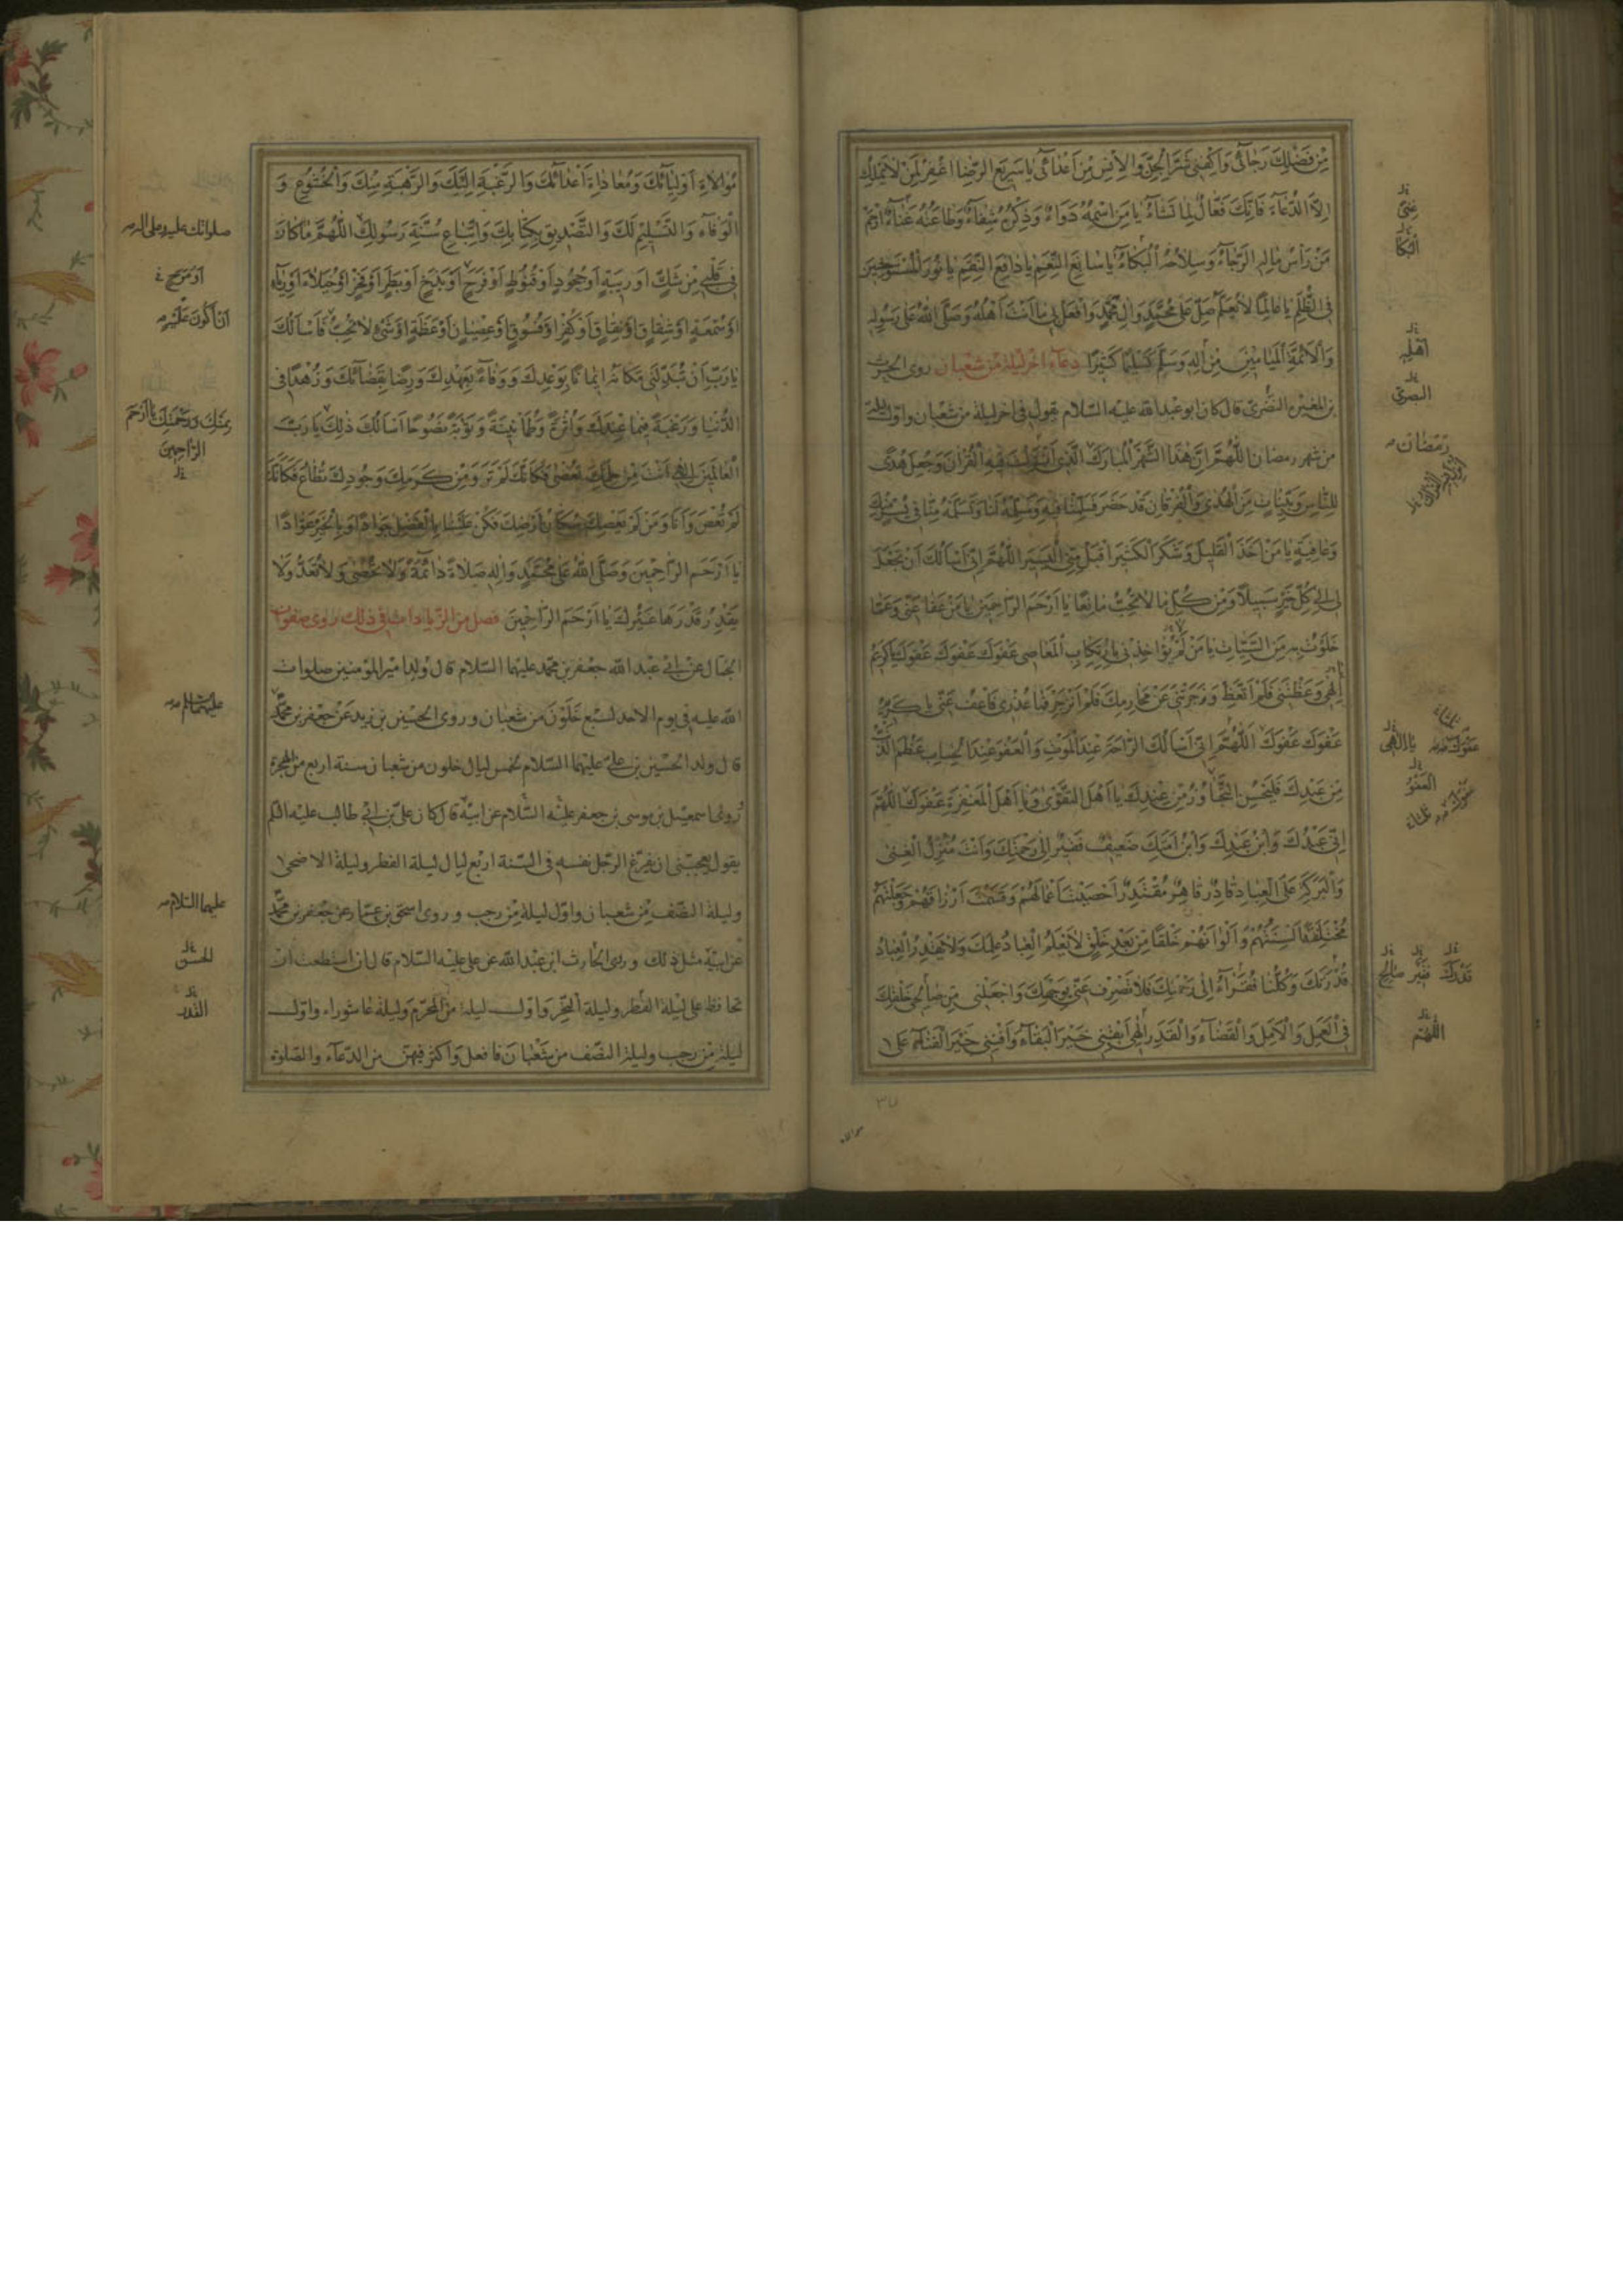 مِنْ فَضْلِكَ رَجَائِي وَاكْفِنِي شَرَّ الْجِنِّ وَالْإِنْسِ مِنْ أَعْدَائِي يَا سَرِيعَ الرِّضَا اغْفِرْ لِمَنْ لَا يَمْلِكُ
إِلَّا الدُّعَاءَ فَإِنَّكَ فَعَّالٌ لِمَا تَشَاءُ يَا مَنِ اسْمُهُ دَوَاءٌ وَذِكْرُهُ شِفَاءٌ وَطَاعَتُهُ غَنَاءٌ ارْحَمْ
مَنْ رَأْسُ مَالِهِ الرَّجَاءُ وَسِلَاحُهُ الْبُكَاءُ يَا سَابِغَ النِّعَمِ يَا دَافِعَ النِّقَمِ يَا نُورَ الْمُسْتَوْحِشِينَ
فِي الظُّلَمِ يَا عَالِمًا لَا يُعَلَّمُ صَلِّ عَلَى مُحَمَّدٍ وَآلِ مُحَمَّدٍ وَافْعَلْ بِي مَا أَنْتَ أَهْلُهُ وَصَلَّى اللهُ عَلَى رَسُولِهِ
وَالْأَئِمَّةِ الْمَيَامِينِ مِنْ آلِهِ وَسَلَّمَ تَسْلِيمًا كَثِيرًا دعاء آخر ليلة من شعبان روى الحرث
بن المغيرة النضري قال كان ابو عبد الله عليه السلام يقول في اخر ليلة من شعبان واول ليلة
من شهر رمضان اللهُمَّ إِنَّ هَذَا الشَّهْرَ الْمُبَارَكَ الَّذِي أُنْزِلَ فِيهِ الْقُرْآنُ وَجُعِلَ هُدًى
لِلنَّاسِ وَبَيِّنَاتٍ مِنَ الْهُدَى وَالْفُرْقَانِ قَدْ حَضَرَ فَسَلِّمْنَا فِيهِ وَسَلِّمْهُ لَنَا وَتَسَلَّمْهُ مِنَّا فِي يُسْرٍ مِنْكَ
وَعَافِيَةٍ يَا مَنْ أَخَذَ الْقَلِيلَ وَشَكَرَ الْكَثِيرَ اقْبَلْ مِنِّي الْيَسِيرَ اللهُمَّ إِنِّي أَسْأَلُكَ أَنْ تَجْعَلَ
لِي إِلَى كُلِّ خَيْرٍ سَبِيلًا وَمِنْ كُلِّ مَا لَا تُحِبُّ مَانِعًا يَا أَرْحَمَ الرَّاحِمِينَ يَا مَنْ عَفَا عَنِّي وَعَمَّا
خَلَوْتُ بِهِ مِنَ السَّيِّئَاتِ يَا مَنْ لَمْ يُؤَاخِذْنِي بِارْتِكَابِ الْمَعَاصِي عَفْوَكَ عَفْوَكَ عَفْوَكَ يَا كَرِيمُ
إِلَهِي وَعَظْتَنِي فَلَمْ أَتَّعِظْ وَزَجَرْتَنِي عَنْ مَحَارِمِكَ فَلَمْ أَنْزَجِرْ فَمَا عُذْرِي فَاعْفُ عَنِّي يَا كَرِيمُ
عَفْوَكَ عَفْوَكَ اللهُمَّ إِنِّي أَسْأَلُكَ الرَّاحَةَ عِنْدَ الْمَوْتِ وَالْعَفْوَ عِنْدَ الْحِسَابِ عَظُمَ الذَّنْبُ
مِنْ عَبْدِكَ فَلْيَحْسُنِ التَّجَاوُزُ مِنْ عِنْدِكَ يَا أَهْلَ التَّقْوَى وَيَا أَهْلَ الْمَغْفِرَةِ عَفْوَكَ اللهُمَّ
إِنِّي عَبْدُكَ وَابْنُ عَبْدِكَ وَابْنُ أَمَتِكَ ضَعِيفٌ فَقِيرٌ إِلَى رَحْمَتِكَ وَأَنْتَ مُنْزِلُ الْغِنَى
وَالْبَرَكَةِ عَلَى الْعِبَادِ قَادِرٌ قَاهِرٌ مُقْتَدِرٌ أَحْصَيْتَ أَعْمَالَهُمْ وَقَسَمْتَ أَرْزَاقَهُمْ وَجَعَلْتَهُمْ
مُخْتَلِفَةً أَلْسِنَتُهُمْ وَأَلْوَانُهُمْ خَلْقًا مِنْ بَعْدِ خَلْقٍ لَا يَعْلَمُ الْعِبَادُ عِلْمَكَ وَلَا يَقْدِرُ الْعِبَادُ
قُدْرَتَكَ وَكُلُّنَا فُقَرَاءُ إِلَى رَحْمَتِكَ فَلَا تَصْرِفْ عَنِّي وَجْهَكَ وَاجْعَلْنِي مِنْ صَالِحِي خَلْقِكَ
فِي الْعَمَلِ وَالْأَمَلِ وَالْقَضَاءِ وَالْقَدَرِ إِلَهِي أَبْقِنِي خَيْرَ الْبَقَاءِ وَأَفْنِنِي خَيْرَ الْفَنَاءِ عَلَى
البكا
اهله
البصرى
رمضان
العفو
قدرك فقير صالح
اللهم
موالاة
مُوَالَاةِ أَوْلِيَائِكَ وَمُعَادَاةِ أَعْدَائِكَ وَالرَّغْبَةِ إِلَيْكَ وَالرَّهْبَةِ مِنْكَ وَالْخُشُوعِ وَ
الْوَفَاءِ وَالتَّسْلِيمِ لَكَ وَالتَّصْدِيقِ بِكِتَابِكَ وَاتِّبَاعِ سُنَّةِ رَسُولِكَ اللهُمَّ مَا كَانَ
فِي قَلْبِي مِنْ شَكٍّ أَوْ رِيبَةٍ أَوْ جُحُودٍ أَوْ قُنُوطٍ أَوْ فَرَحٍ أَوْ بَذَخٍ أَوْ بَطَرٍ أَوْ فَخْرٍ أَوْ خُيَلَاءَ أَوْ رِيَاءٍ
أَوْ سُمْعَةٍ أَوْ شِقَاقٍ أَوْ نِفَاقٍ أَوْ كُفْرٍ أَوْ فُسُوقٍ أَوْ عِصْيَانٍ أَوْ عَظَمَةٍ أَوْ شَيْءٍ لَا تُحِبُّ فَأَسْأَلُكَ
يَا رَبِّ أَنْ تُبَدِّلَنِي مَكَانَهُ إِيمَانًا بِوَعْدِكَ وَوَفَاءً بِعَهْدِكَ وَرِضًا بِقَضَائِكَ وَزُهْدًا فِي
الدُّنْيَا وَرَغْبَةً فِيمَا عِنْدَكَ وَأَثَرَةً وَطُمَأْنِينَةً وَتَوْبَةً نَصُوحًا أَسْأَلُكَ ذَلِكَ يَا رَبَّ
الْعَالَمِينَ إِلَهِي أَنْتَ مِنْ حِلْمِكَ تُعْصَى فَكَأَنَّكَ لَمْ تَرَ وَمِنْ كَرَمِكَ وَجُودِكَ تُطَاعُ فَكَأَنَّكَ
لَمْ تُعْصَ وَأَنَا وَمَنْ لَمْ يَعْصِكَ سُكَّانُ أَرْضِكَ فَكُنْ عَلَيْنَا بِالْفَضْلِ جَوَادًا وَبِالْخَيْرِ عَوَّادًا
يَا أَرْحَمَ الرَّاحِمِينَ وَصَلَّى اللهُ عَلَى مُحَمَّدٍ وَآلِهِ صَلَاةً دَائِمَةً وَلَا تُحْصَى وَلَا تُعَدُّ وَلَا
يَقْدِرُ قَدْرَهَا غَيْرُكَ يَا أَرْحَمَ الرَّاحِمِينَ فصل من الزيادات في ذلك روى صفوان
الجمال عن ابي عبد الله جعفر بن محمد عليهما السلام قال ولد امير المؤمنين صلوات
الله عليه في يوم الاحد لسبع خلون من شعبان وروى الحسين بن زيد عن جعفر بن محمد
قال ولد الحسين بن علي عليهما السلام لخمس ليال خلون من شعبان سنة اربع من الهجرة
روى اسمعيل بن موسى بن جعفر عليه السلام عن ابيه قال كان علي بن ابي طالب عليه السلم
يقول يعجبني ان يفرغ الرجل نفسه في السنة اربع ليال ليلة الفطر وليلة الاضحى
وليلة النصف من شعبان واول ليلة من رجب وروى اسحق بن عمار عن جعفر بن محمد
عن ابيه مثل ذلك وروى الحارث ابن عبد الله عن علي عليه السلام قال ان استطعت ان
تحافظ على ليلة الفطر وليلة النحر واول ليلة من المحرم وليلة عاشوراء واول
ليلة من رجب وليلة النصف من شعبان فافعل واكثر فيهن من الدعاء والصلوة
صلواتك عليه وعلى اله
او مرح
ان اكون عليه
بمنك ورحمتك يا ارحم
الراحمين
عليهما السلم
عليهما السلام